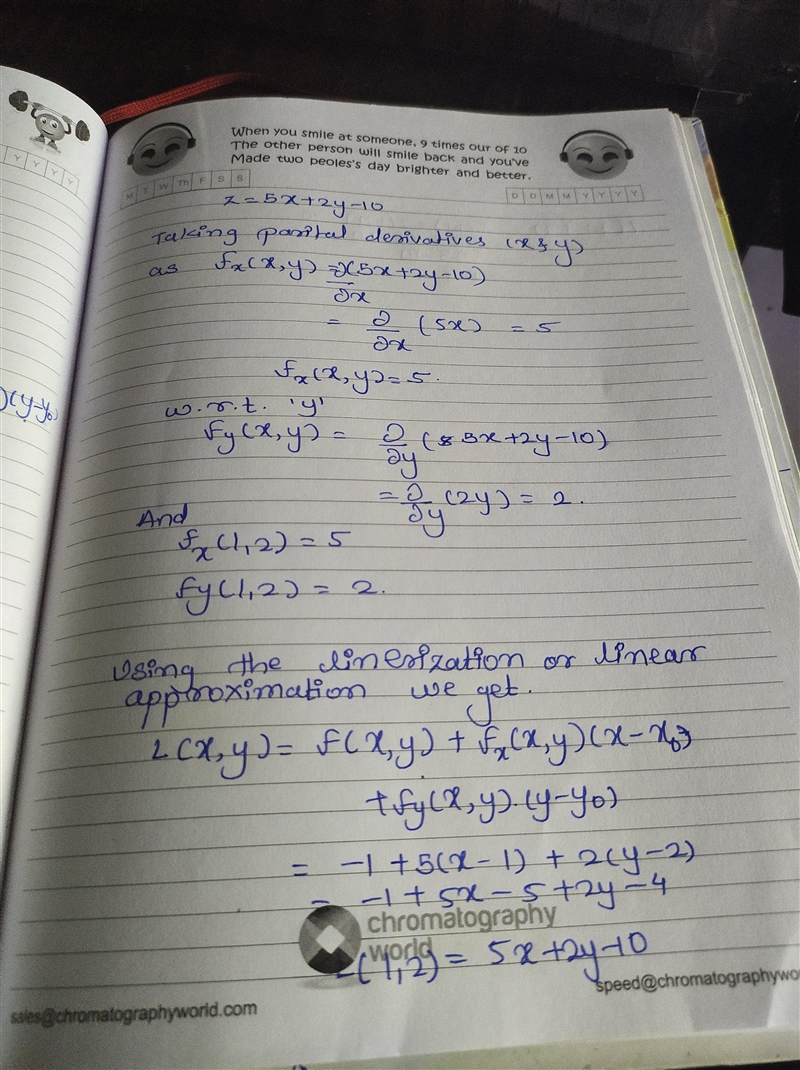 When you smile at someone, 9 times our of 10
The other person will smile back and you've
Made two peoles's day brighter and better.
Y Y Y Y
M T W Th F S S
D D M M Y Y Y Y
z = 5x+2y-10
Taking parital derivatives (x & y)
as fx(x,y) = ∂(5x+2y-10)
∂x
= ∂/∂x (5x) = 5
fx(x,y) = 5.
)(y-y0)
w.r.t. 'y'
fy(x,y) = ∂/∂y (5x+2y-10)
= ∂/∂y (2y) = 2.
And
fx(1,2) = 5
fy(1,2) = 2.
Using the linerization or linear
approximation we get.
L(x,y) = f(x,y) + fx(x,y)(x-x0)
+ fy(x,y).(y-y0)
= -1 + 5(x-1) + 2(y-2)
= -1 + 5x - 5 + 2y - 4
chromatography
world
(1,2) = 5x+2y-10
speed@chromatographywo
sales@chromatographyworld.com